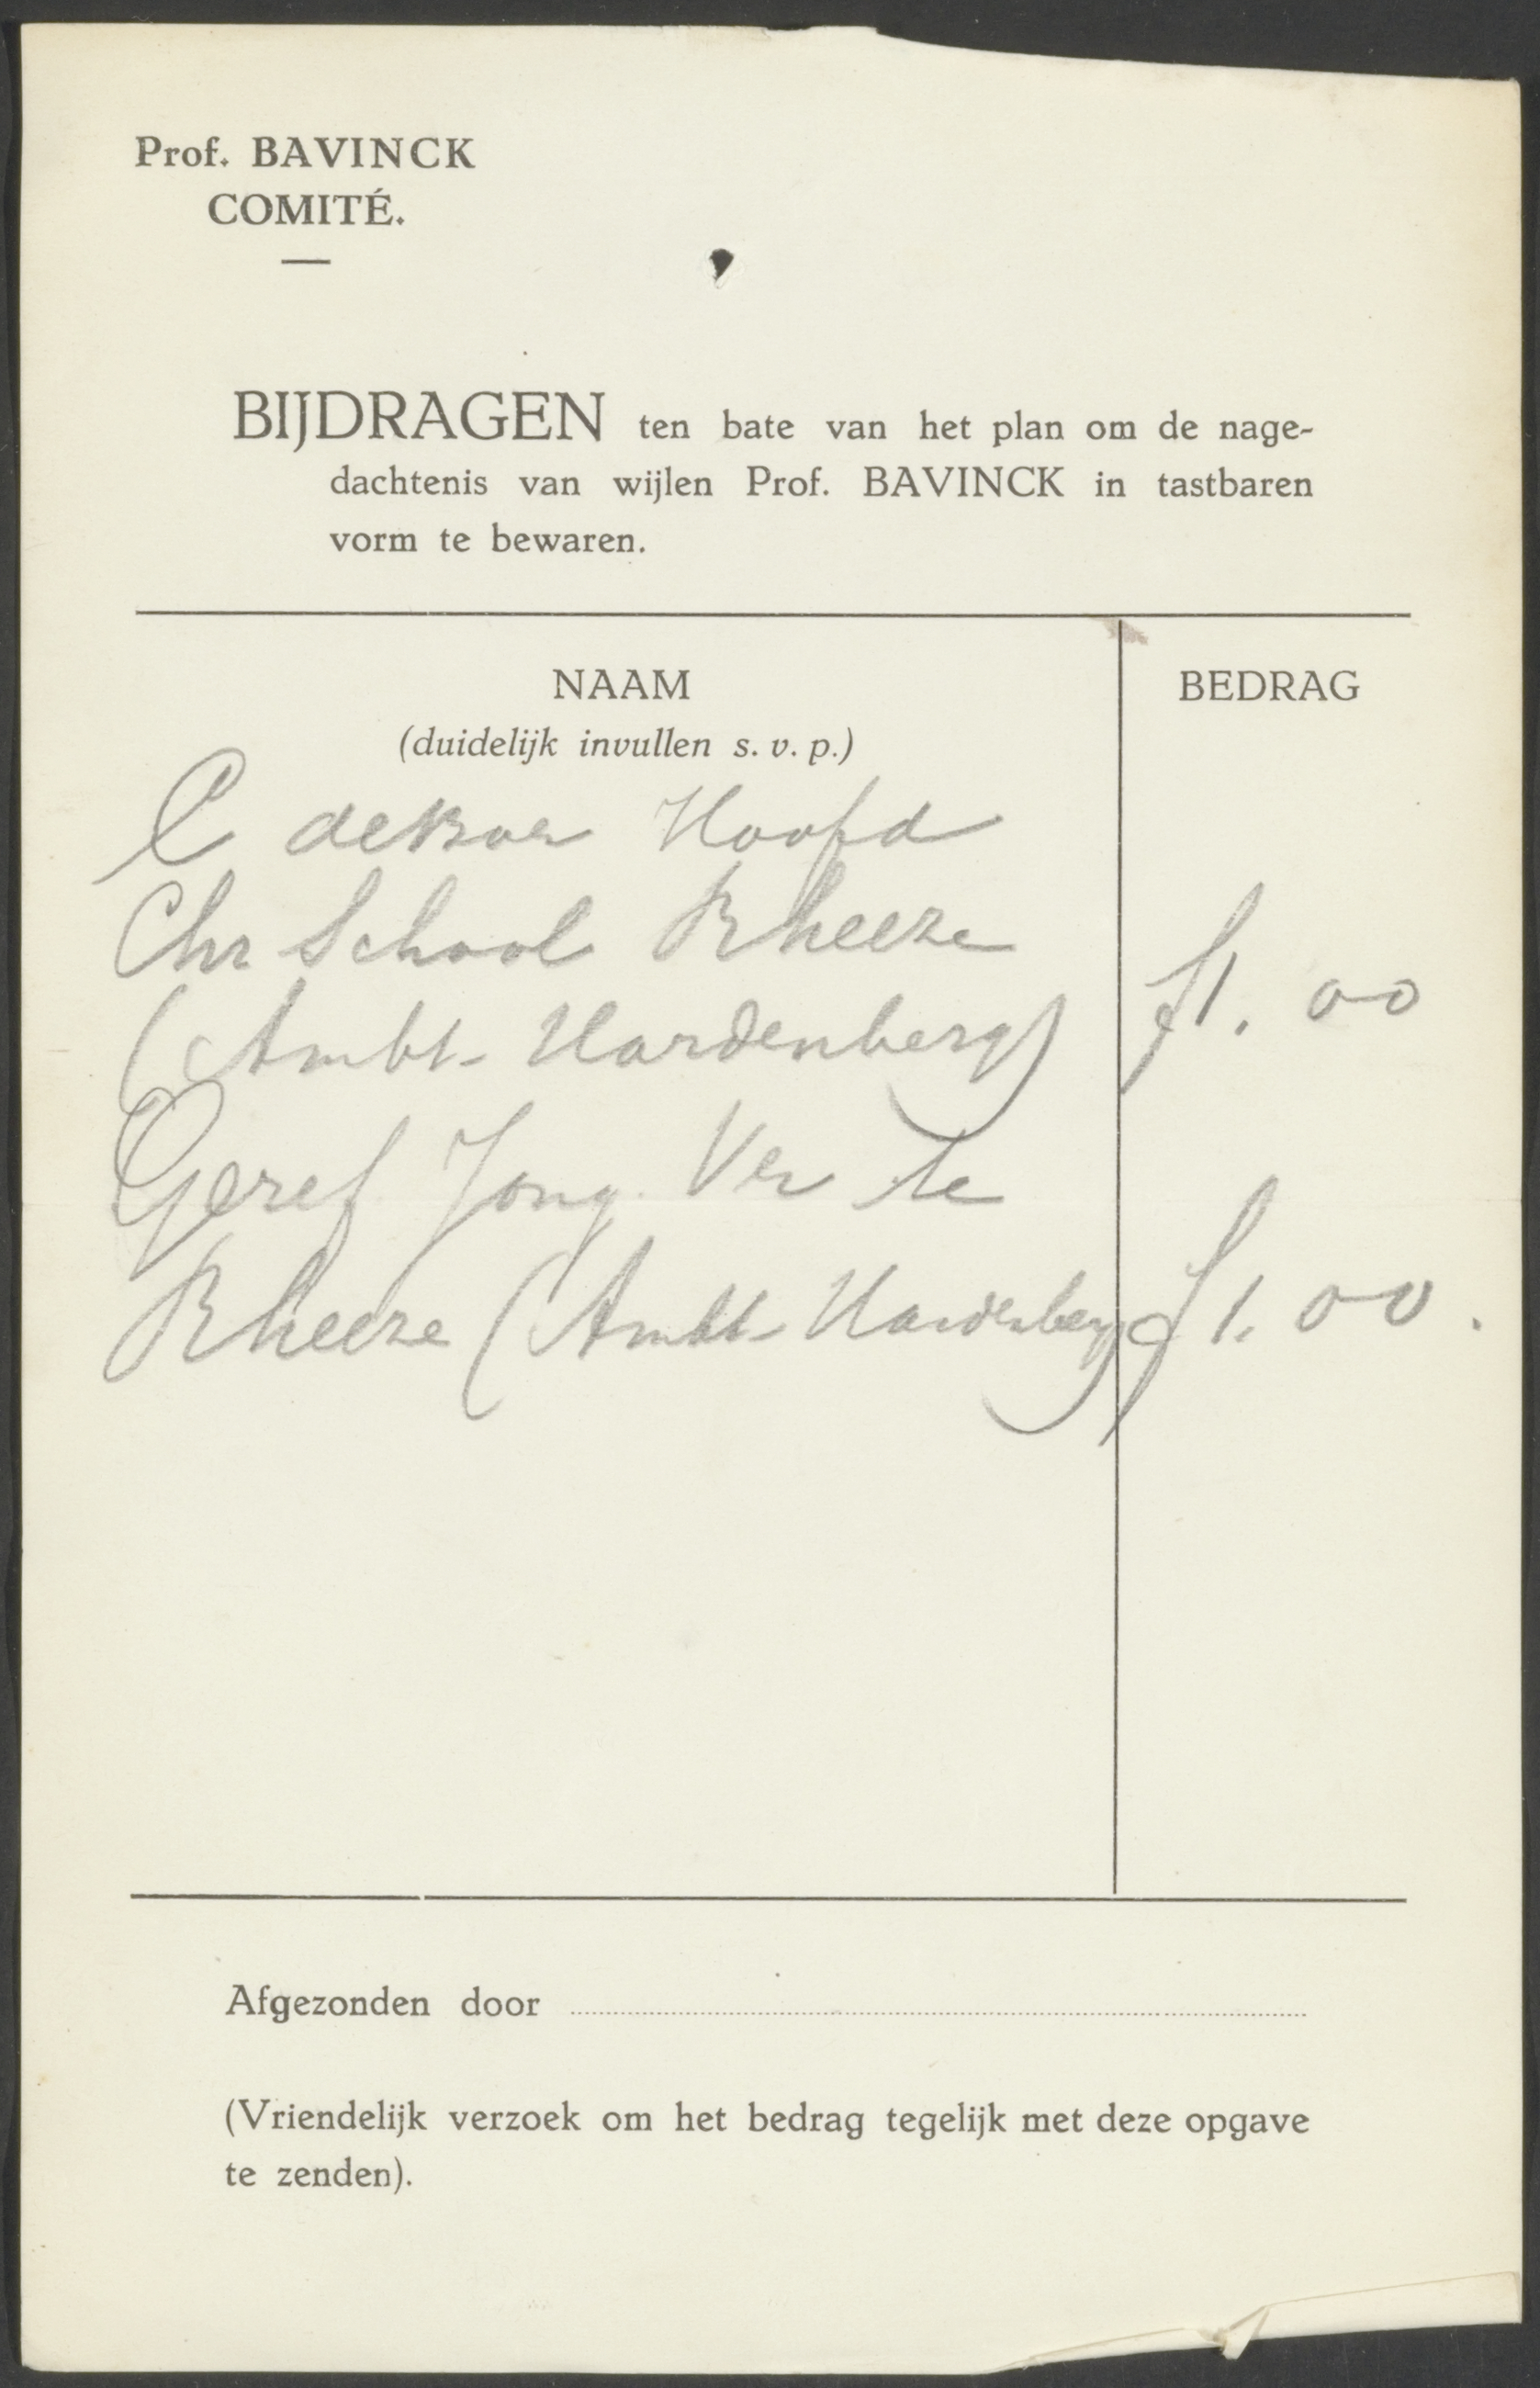 Prof. BAVINCK
COMITÉ.
BIJDRAGEN ten bate van het plan om de nage-
dachtenis van wijlen Prof. BAVINCK in tastbaren
vorm te bewaren.
NAAM BEDRAG
(duidelijk invullen s. v. p.)
Hoofd
Chr School Rheeze
(Ambt-Hardenberg) f1.00
Geref Jong. Ver te
Rheeze (Ambt-Hardenberg) f1.00.
Afgezonden door
(Vriendelijk verzoek om het bedrag tegelijk met deze opgave
te zenden).